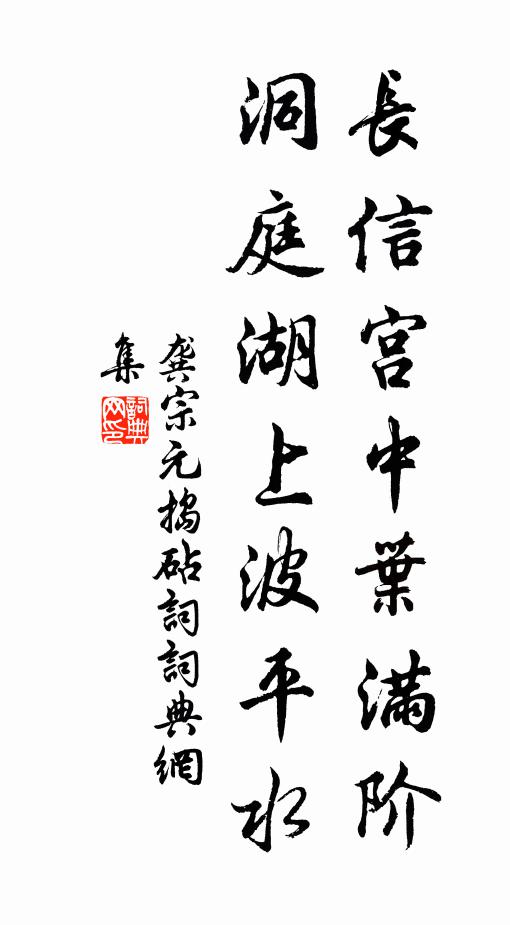 長信宫中葉滿阶
洞庭湖上波平水
龚宗元搗砧詞詞典網
集
詞典
网印